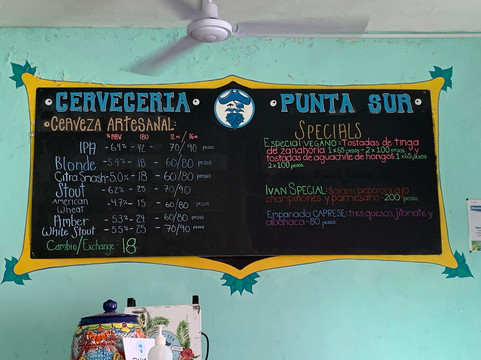 CERVECERIA PUNTA SUR
CERVEZA ARTESANAL:
% ABV IBU 12 oz 16 oz
IPA - 6.9% - 42 70/90 pesos
Blonde - 5.4% - 18 - 60/80 pesos
Citra Smash - 5.0% - 18 - 60/80 pesos
Stout - 6.2% - 25 - 70/90
American Wheat - 4.7% - 15 - 60/80 pesos
Amber - 5.3% - 24 - 60/80 pesos
White Stout - 5.5% - 25 - 70/90 pesos
Cambio/Exchange: 18
SPECIALS
ESPECIAL VEGANO: Tostadas de tinga
de zanahoria 1x65 pesos - 2x100 pesos y
tostadas de aguachile de hongos 1x65 pesos
2x100 pesos
IVAN SPECIAL: Salami, peperoni, ajo
champiñones y parmesano - 200 pesos
Empanada CAPRESE: tres quesos, jitomate y
albahaca - 80 pesos